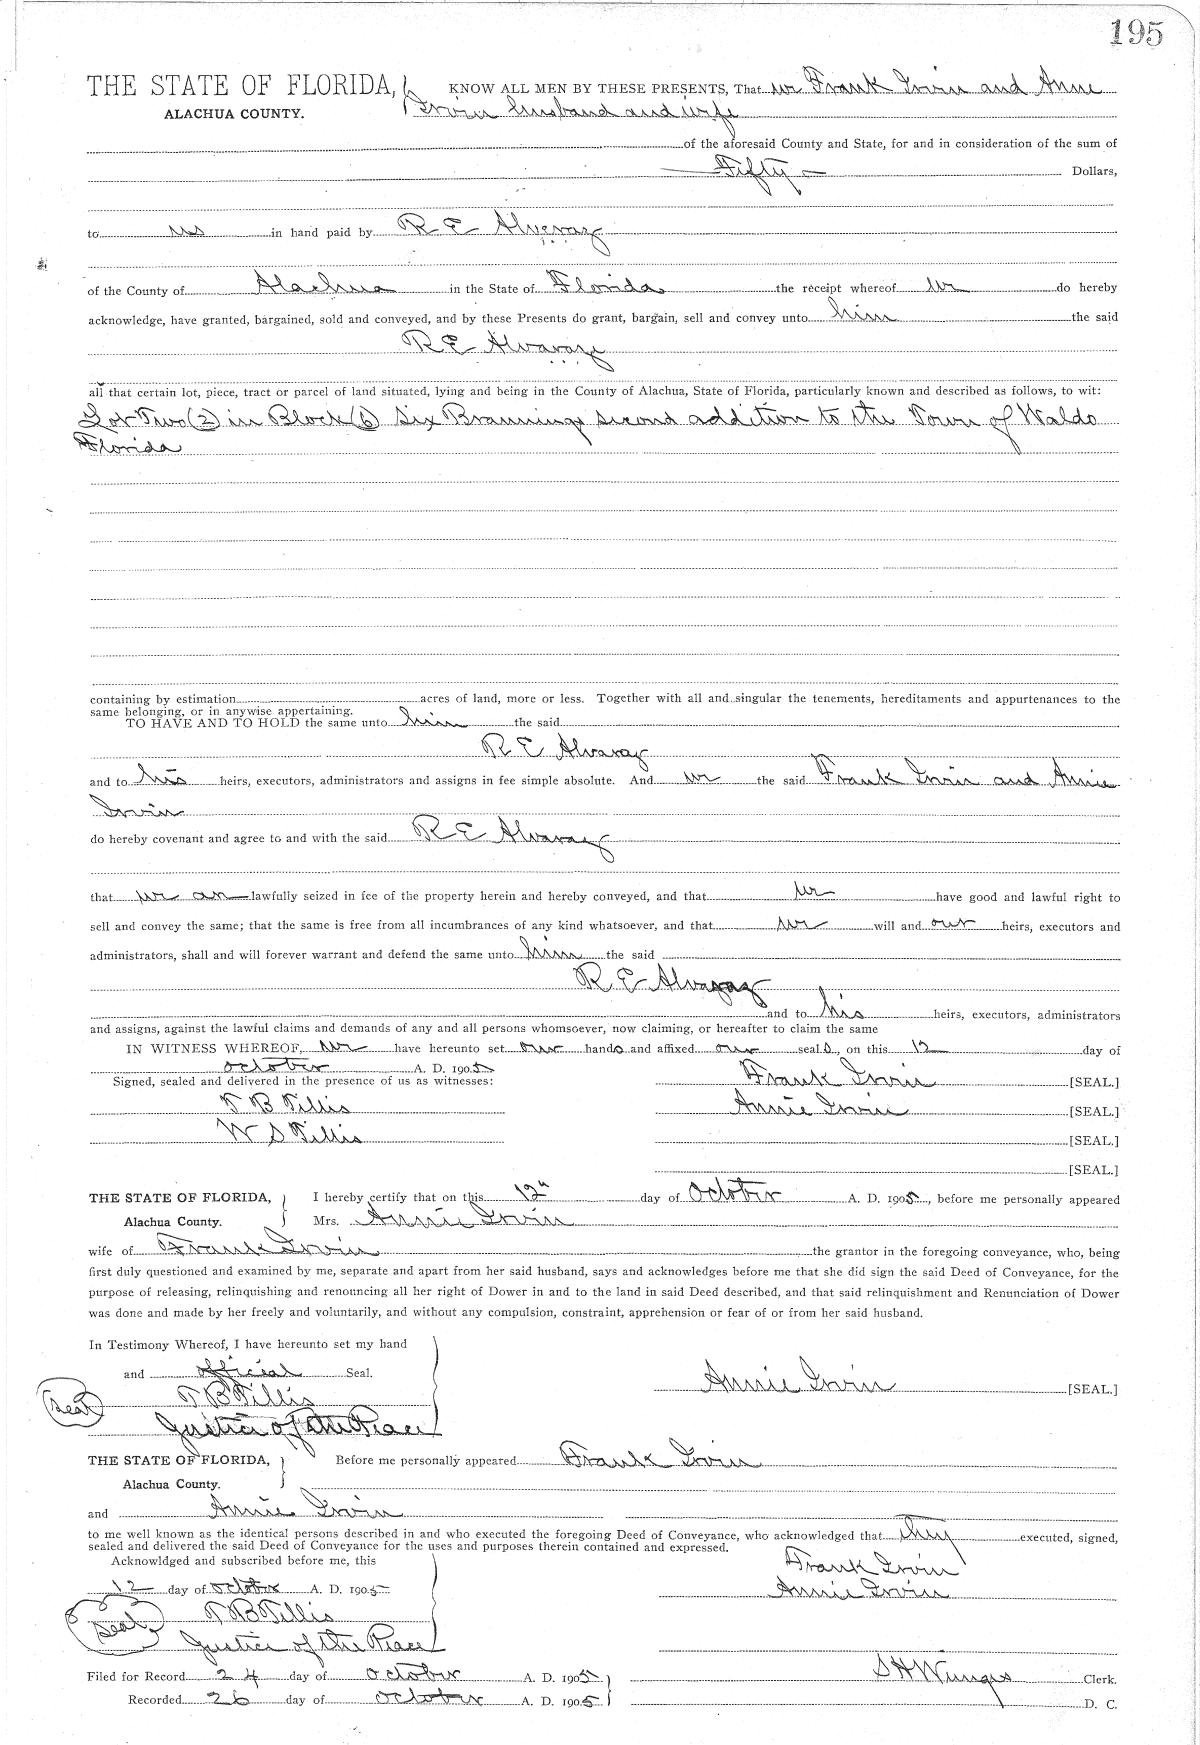 195
THE STATE OF FLORIDA, KNOW ALL MEN BY THESE PRESENTS, That we Frank Irvin and Anne
ALACHUA COUNTY. Irvin husband and wife
of the aforesaid County and State, for and in consideration of the sum of
Fifty Dollars,
to us in hand paid by R E Alveraz
of the County of Alachua in the State of Florida the receipt whereof we do hereby
acknowledge, have granted, bargained, sold and conveyed, and by these Presents do grant, bargain, sell and convey unto him the said
R E Alvaraz
all that certain lot, piece, tract or parcel of land situated, lying and being in the County of Alachua, State of Florida, particularly known and described as follows, to wit:
Lot Two (2) in Block (6) Six Brannings second addition to the Town of Waldo
Florida
containing by estimation acres of land, more or less. Together with all and singular the tenements, hereditaments and appurtenances to the
same belonging, or in anywise appertaining.
TO HAVE AND TO HOLD the same unto him the said
R E Alvaraz
and to his heirs, executors, administrators and assigns in fee simple absolute. And we the said Frank Irvin and Annie
Irvin
do hereby covenant and agree to and with the said R E Alvaraz
that we are lawfully seized in fee of the property herein and hereby conveyed, and that we have good and lawful right to
sell and convey the same; that the same is free from all incumbrances of any kind whatsoever, and that we will and our heirs, executors and
administrators, shall and will forever warrant and defend the same unto him the said
R E Alvaraz
and to his heirs, executors, administrators
and assigns, against the lawful claims and demands of any and all persons whomsoever, now claiming, or hereafter to claim the same
IN WITNESS WHEREOF, we have hereunto set our hands and affixed our seals, on this 12 day of
October A. D. 1905 Frank Irvin [SEAL.]
Signed, sealed and delivered in the presence of us as witnesses:
T B Tillis Annie Irvin [SEAL.]
W S Tillis [SEAL.]
[SEAL.]
THE STATE OF FLORIDA, I hereby certify that on this 12" day of October A. D. 1905, before me personally appeared
Alachua County. Mrs. Annie Irvin
wife of Frank Irvin the grantor in the foregoing conveyance, who, being
first duly questioned and examined by me, separate and apart from her said husband, says and acknowledges before me that she did sign the said Deed of Conveyance, for the
purpose of releasing, relinquishing and renouncing all her right of Dower in and to the land in said Deed described, and that said relinquishment and Renunciation of Dower
was done and made by her freely and voluntarily, and without any compulsion, constraint, apprehension or fear of or from her said husband.
In Testimony Whereof, I have hereunto set my hand
and official Seal. Annie Irvin [SEAL.]
Seal T B Tillis
Justice of the Peace
THE STATE OF FLORIDA, Before me personally appeared Frank Irvin
Alachua County.
and Annie Irvin
to me well known as the identical persons described in and who executed the foregoing Deed of Conveyance, who acknowledged that they executed, signed,
sealed and delivered the said Deed of Conveyance for the uses and purposes therein contained and expressed.
Acknowldged and subscribed before me, this Frank Irvin
12 day of October A. D. 1905 Annie Irvin
Seal T B Tillis
Justice of the Peace
Filed for Record 24 day of October A. D. 1905 S H Wienges Clerk.
Recorded 26 day of October A. D. 1905 D. C.